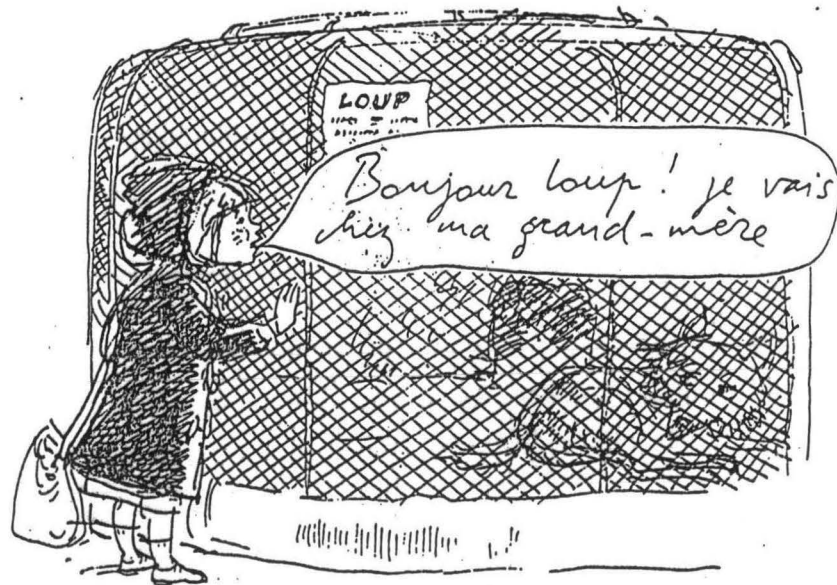 LOUP
Bonjour loup ! je vais
chez ma grand-mère